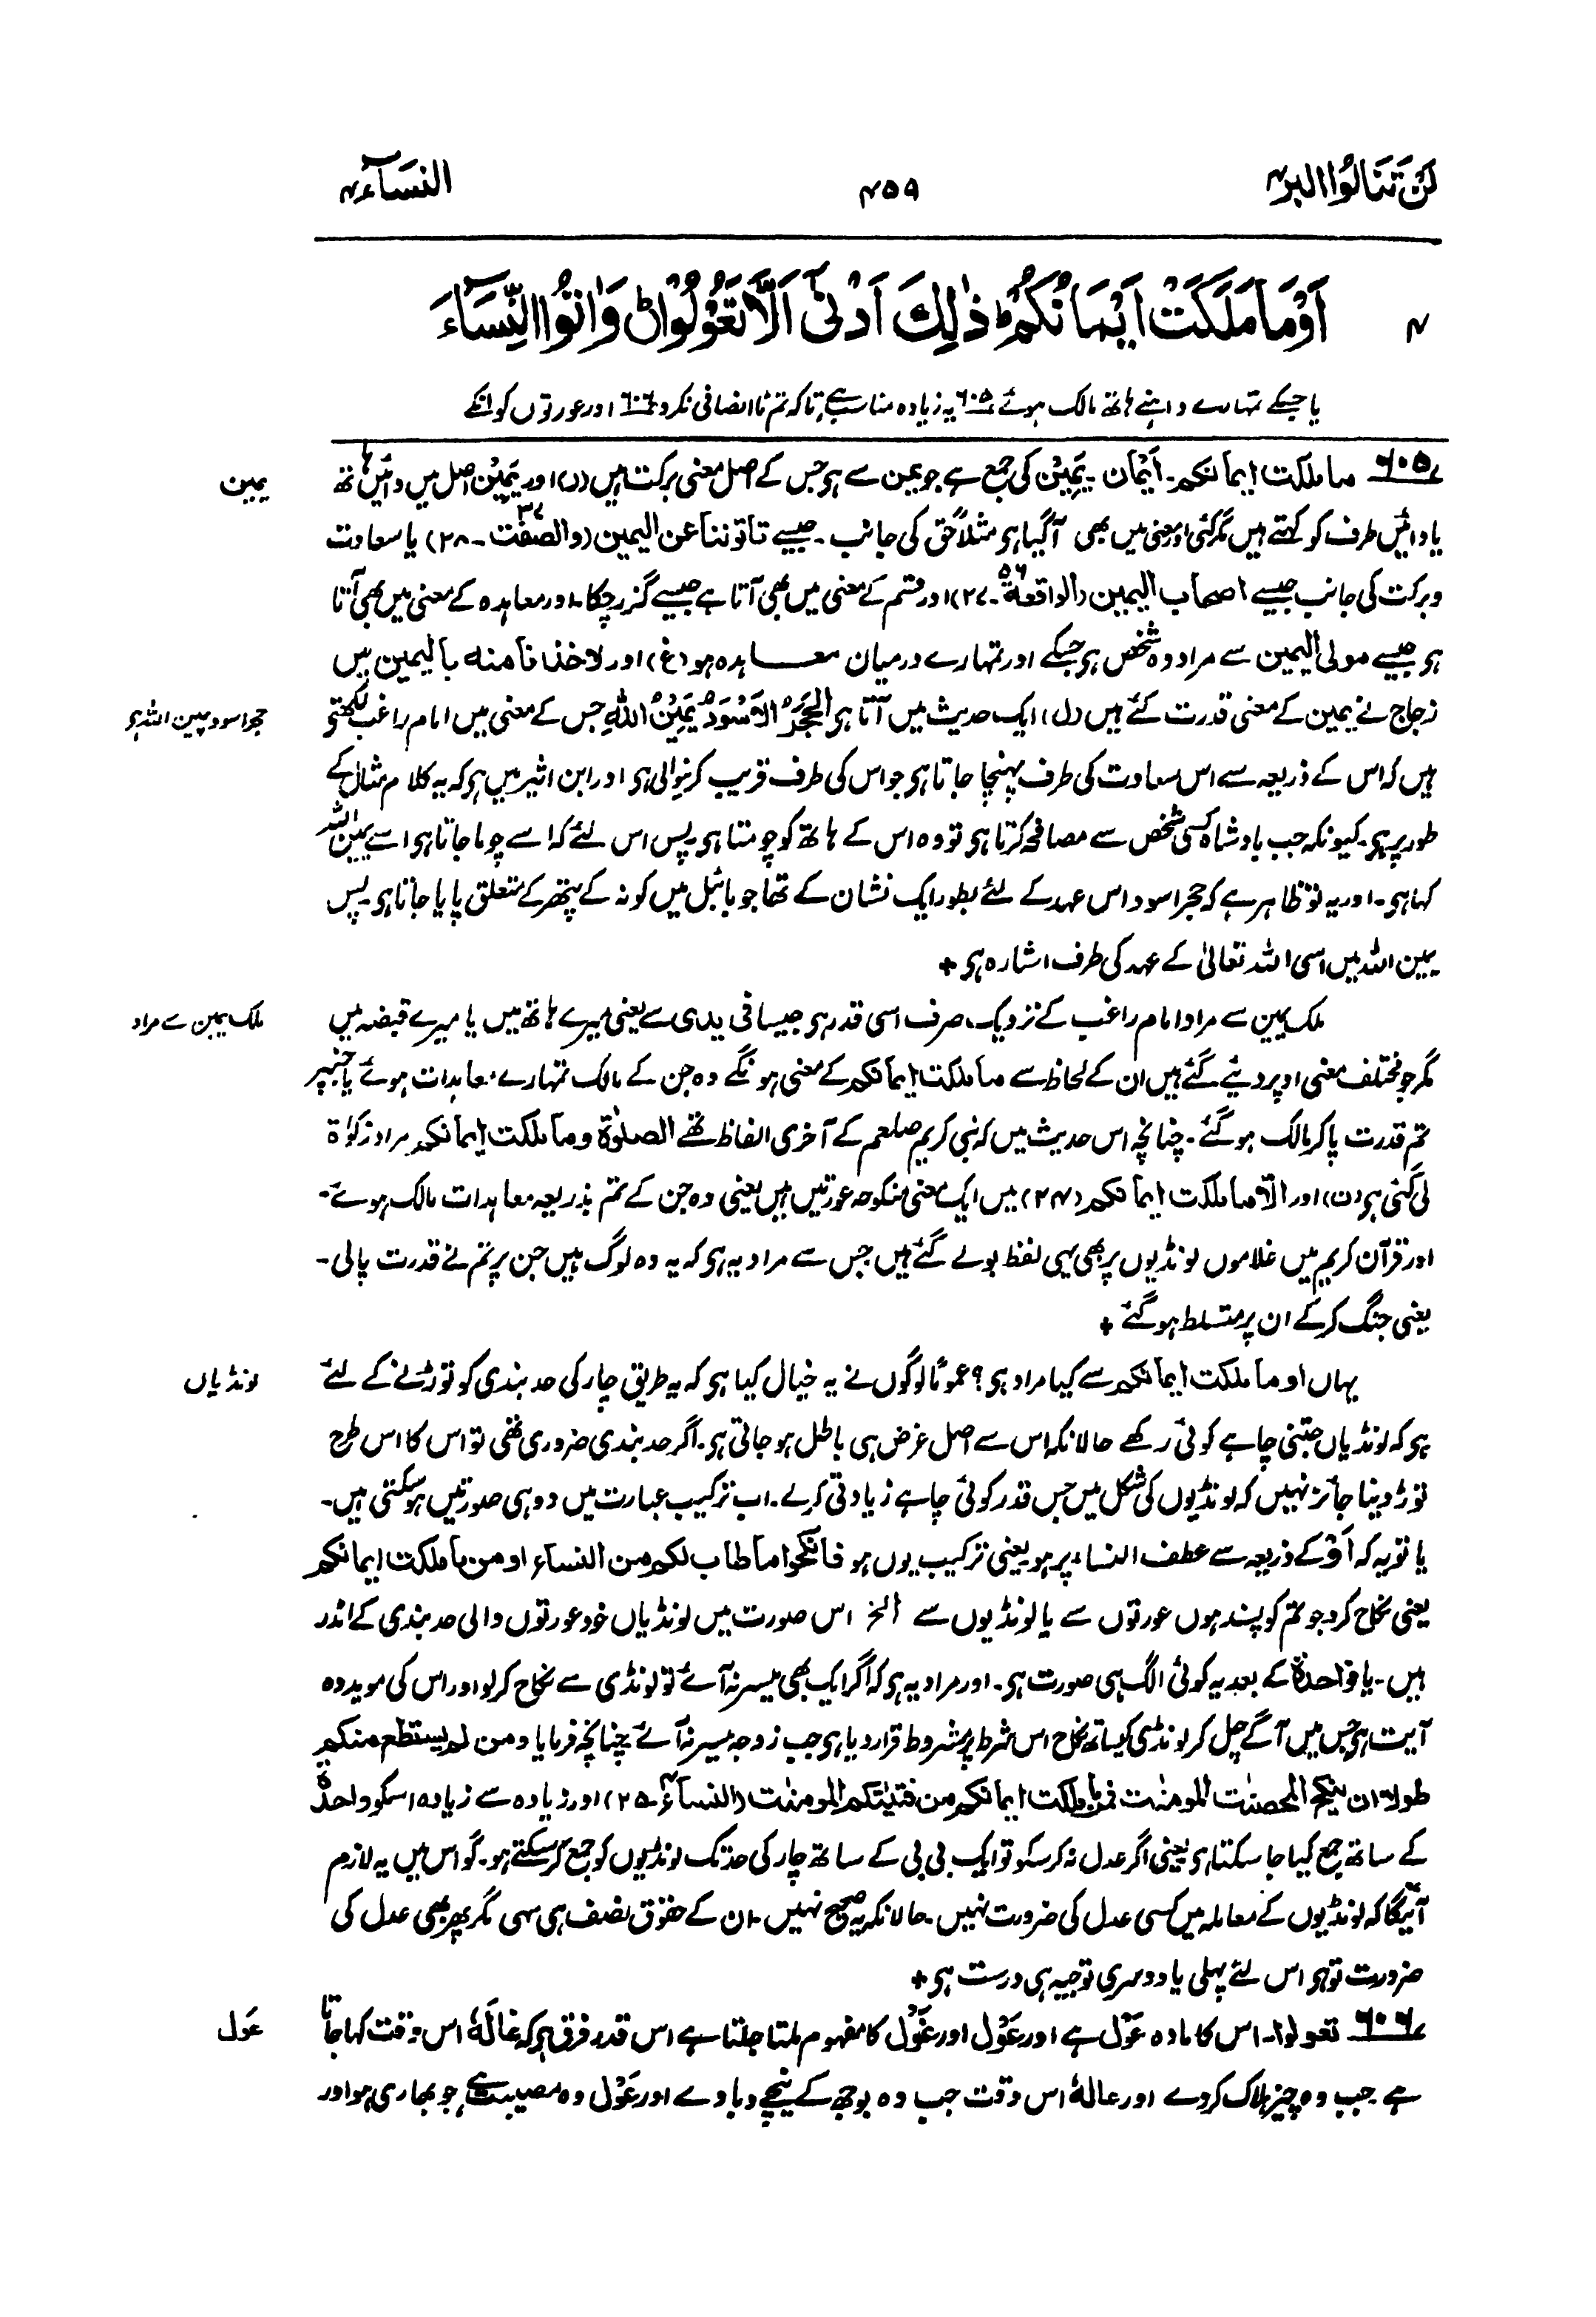 لَنْ تَنَالُوا البر ۴
۴۵۹
النسَآء ۴
۴
اَوْ مَا مَلَكَتْ اَيْمَانُكُمْ ؕ ذٰلِكَ اَدْنٰٓى اَلَّا تَعُوْلُوْا وَاٰتُوا النِّسَآءَ
یا جسکے تمہارے داہنے ہاتھ مالک ہوئے ۶۰۵ یہ زیادہ مناسب ہے تاکہ تم ناانصافی نکرو ۶۰۶ اور عورتوں کو انکے
۶۰۵ ما ملكت ايمانكم۔ اَیْمَان۔ یَمِیْن کی جمع ہے جو یمن سے ہی جس کے اصل معنی برکت ہیں (ل) اور یَمِیْن اصل میں دائیں ہاتھ
یمین
یا دائیں طرف کو کہتے ہیں مگر کئی اور معنی میں بھی آگیا ہی مثلاً حق کی جانب۔ جیسے تاتوننا عن الیمین (والصّٰفّٰت ۳۷۔۲۸) یا سعادت
وبرکت کی جانب جیسے اصحاب الیمین (الواقعة ۵۶۔۲۷) اور قسم کے معنی میں بھی آتا ہے جیسے گزر چکا۔ اور معاہدہ کے معنی میں بھی آتا
ہی جیسے مولی الیمین سے مراد وہ شخص ہی جسکے اور تمہارے درمیان معاہدہ ہو (غ) اور لاخذنا منه بالیمین میں
زجاج نے یمین کے معنی قدرت کئے ہیں (ل) ایک حدیث میں آتا ہی الْحَجَرُ الْاَسْوَدُ یَمِیْنُ اللهِ جس کے معنی میں امام راغب لکھتے
حجر اسود یمین اللہ ہی
ہیں کہ اس کے ذریعہ سے اس سعادت کی طرف پہنچا جاتا ہی جو اس کی طرف قریب کرنیوالی ہی اور ابن اثیر میں ہی کہ یہ کلام مثال کے
طور پر ہی۔ کیونکہ جب بادشاہ کسی شخص سے مصافحہ کرتا ہی تو وہ اس کے ہاتھ کو چومتا ہی۔ پس اس لئے کہ اسے چوما جاتا ہی اسے یمین اللہ
کہا ہی۔ اور یہ تو ظاہر ہے کہ حجر اسود اس عہد کے لئے بطور ایک نشان کے تھا جو بائبل میں کونہ کے پتھر کے متعلق پایا جاتا ہی۔ پس
یمین اللہ میں اسی اللہ تعالیٰ کے عہد کی طرف اشارہ ہی +
ملک یمین سے مراد امام راغب کے نزدیک صرف اسی قدر ہی جیسا فی یدی سے یعنی میرے ہاتھ میں یا میرے قبضہ میں
ملک یمین سے مراد
مگر جو مختلف معنی اوپر دیئے گئے ہیں ان کے لحاظ سے ما ملكت ايمانكم کے معنی ہونگے وہ جن کے مالک تمہارے معاہدات ہوئے یا جنپر
تم قدرت پاکر مالک ہوگئے۔ چنانچہ اس حدیث میں کہ نبی کریم صلعم کے آخری الفاظ تھے الصلوٰة وما ملكت ايمانكم مراد زکوٰۃ
لی گئی ہی (ن) اور الّا ما ملكت ايمانكم (۲۴) میں ایک معنی منکوحہ عورتیں ہیں یعنی وہ جن کے تم بذریعہ معاہدات مالک ہوئے۔
اور قرآن کریم میں غلاموں لونڈیوں پر بھی یہی لفظ بولے گئے ہیں جس سے مراد یہ ہی کہ یہ وہ لوگ ہیں جن پر تم نے قدرت پالی۔
یعنی جنگ کرکے ان پر متسلط ہوگئے +
یہاں او ما ملكت ايمانكم سے کیا مراد ہی؟ عموماً لوگوں نے یہ خیال کیا ہی کہ یہ طریق چار کی حد بندی کو توڑنے کے لئے
لونڈیاں
ہی کہ لونڈیاں جتنی چاہے کوئی رکھے حالانکہ اس سے اصل غرض ہی باطل ہو جاتی ہی۔ اگر حد بندی ضروری تھی تو اس کا اس طرح
توڑ دینا جائز نہیں کہ لونڈیوں کی شکل میں جس قدر کوئی چاہے زیادتی کرلے۔ اب ترکیب عبارت میں دو ہی صورتیں ہو سکتی ہیں۔
یا تو یہ کہ اَوْ کے ذریعہ سے عطف النساء پر ہو یعنی ترکیب یوں ہو فانكحوا ما طاب لكم من النساء او من ما ملكت ايمانكم
یعنی نکاح کرو جو تم کو پسند ہوں عورتوں سے یا لونڈیوں سے الخ اس صورت میں لونڈیاں خود عورتوں والی حد بندی کے اندر
ہیں۔ یا فواحدة کے بعد یہ کوئی الگ ہی صورت ہی۔ اور مراد یہ ہی کہ اگر ایک بھی میسر نہ آئے تو لونڈی سے نکاح کرلو اور اس کی موید وہ
آیت ہی جس میں آگے چل کر لونڈی کیساتھ نکاح اس شرط پر مشروط قرار دیا ہی جب زوجہ میسر نہ آئے چنانچہ فرمایا ومن لم یستطع منكم
طولا ان ینكح المحصنٰت المومنٰت فمن ما ملكت ايمانكم من فتیٰتكم المومنٰت (النساء ۴۔۲۵) اور زیادہ سے زیادہ اسکو واحدة
کے ساتھ جمع کیا جا سکتا ہی یعنی اگر عدل نہ کر سکو تو ایک بی بی کے ساتھ چار کی حد تک لونڈیوں کو جمع کر سکتے ہو۔ گو اس میں یہ لازم
آئیگا کہ لونڈیوں کے معاملہ میں کسی عدل کی ضرورت نہیں۔ حالانکہ یہ صحیح نہیں۔ ان کے حقوق نصف ہی سہی مگر پھر بھی عدل کی
ضرورت تو ہی اس لئے پہلی یا دوسری توجیہ ہی درست ہی +
۶۰۶ تعولوا۔ اس کا مادہ عَوْل ہے اور عَوْل اور غَوْل کا مفہوم ملتا جلتا ہے اس قدر فرق ہی کہ غالَهٗ اس وقت کہا جاتا
عَول
ہے جب وہ چیز ہلاک کردے اور عالهٗ اس وقت جب وہ بوجھ کے نیچے دبادے اور عَوْل وہ مصیبت ہے جو بھاری ہو اور